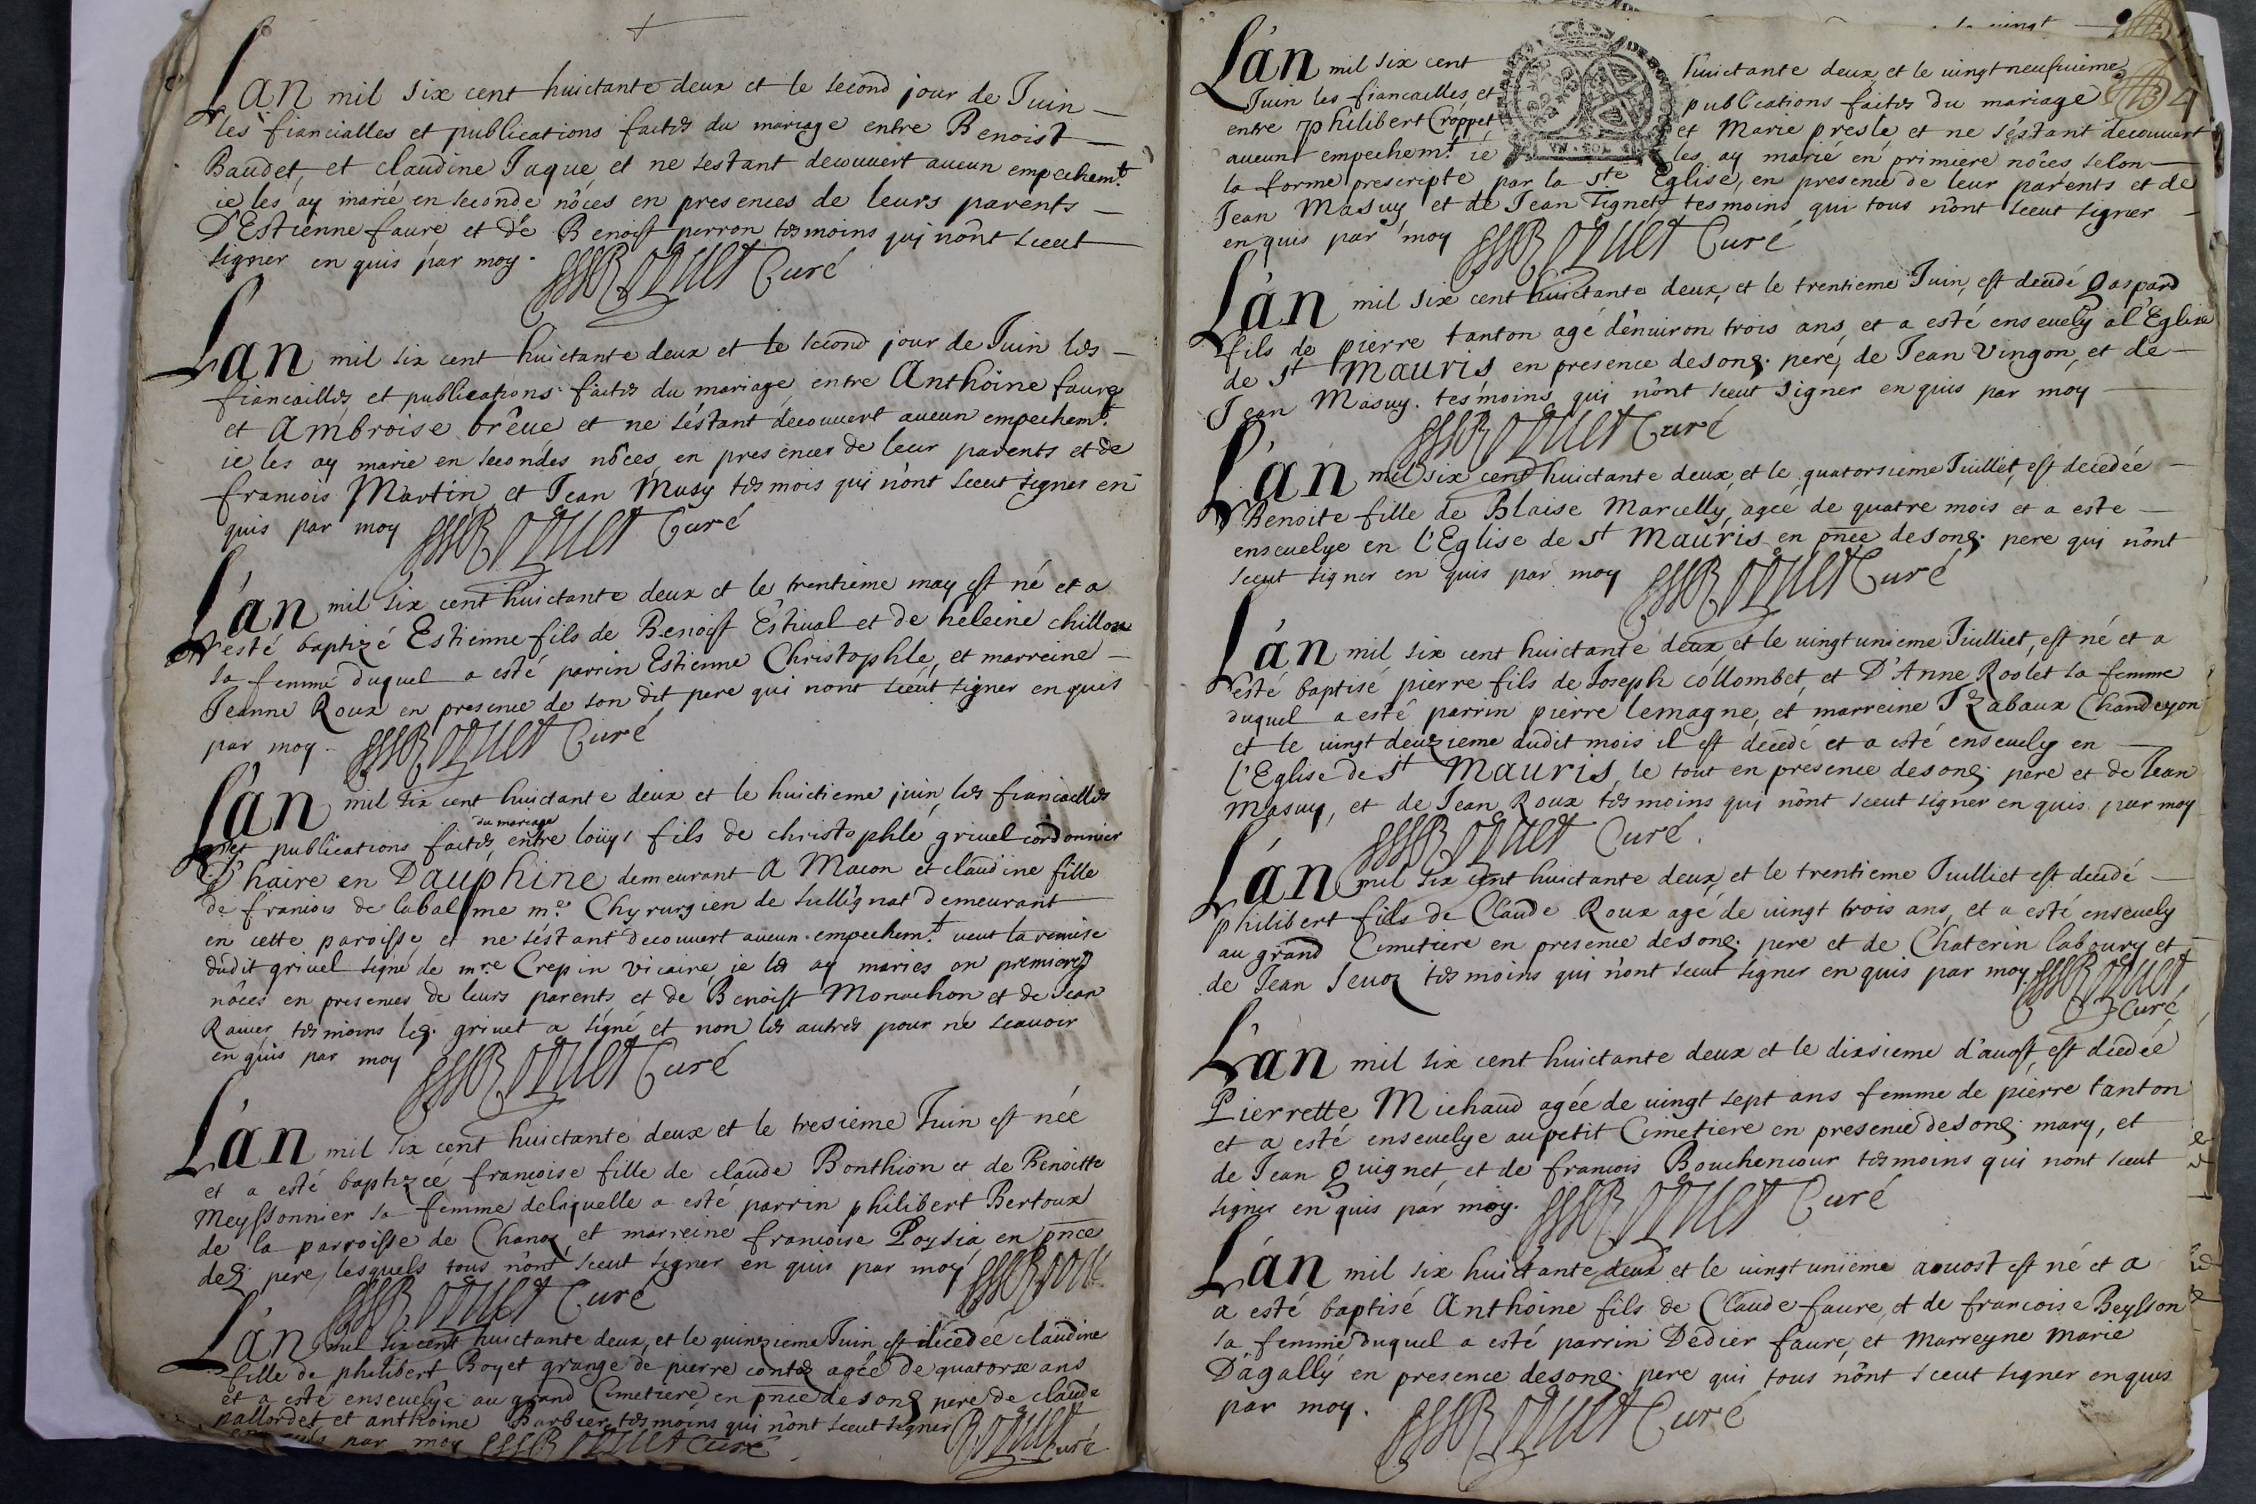 L'an mil six cent huictante deux et le second jour de Juin
les fiancialles et publications faites du mariage entre Benoist
Baudet, et claudine Jaque et ne s'estant decouuert aucun empechemt.
ie les ay marié en seconde nôces en presences de leurs parents
D'Estienne faure et de Benoist perron tesmoins qui nônt sceut
signer enquis par moy. Curé
L'an mil six cent huictante deux et le second jour de Juin les
fiancailles et publications faites du mariage entre Anthoine faure
et Ambroise brêue et ne s'éstant decouuert aucun empechemt.
ie les ay marie en secondes nôces en presences de leur parents et de
francois Martin et Jean Musy tesmois qui n'ont sceut signer en
quis par moy Curé
L'an mil six cent huictante deux et le trentieme may est né et a
esté baptizé Estienne fils de Benoist Estiual et de heleine chillon
sa femme duquel a esté parrin Estienne Christophle, et marreine
Jeanne Roux en presence de son dit pere qui nont sceut signer enquis
par moy. Curé
L'an mil six cent huictante deux et le huictieme juin les fiancailles
du mariage
et publications faites entre loüys fils de christophle griuel cordonnier
D'haire en Dauphine demeurant A Macon et claudine fille
de francois de labalme me. Chyrurgien de sullignat demeurant
en cette paroisse et ne s'éstant decouuert aucun empechemt. veut la remise
dudit griuel signé de mre Crepin vicaire ie les ay maries en premieres
nôces en presences de leurs parents et de Benoist Monachon et de Jean
Rauier tesmoins led. griuel a signé et non les autres pour ne scauoir
enquis par moy Curé
L'an mil six cent huictante deux et le tresieme Juin est née
et a esté baptizcé francoise fille de claude Bonthion et de Benoitte
Meyssonnier sa femme delaquelle a esté parrin philibert Bertoux
de la parroisse de Chanoz et marreine francoise Poysia en pnce
dud. pere, lesquels tous nônt sceut signer en quis par moy
Curé
L'an mil six cent huictante deux, et le quinzieme Juin est décedée claudine
fille de philibert Boyet granger de pierre contoz agée de quatorze ans
et a esté enseuelÿe au grand Cimetiere en pnce desond. pere de claude
pallordet et anthoine Barbier tesmoins qui nônt sceut signer
enquis par moy Curé Curé
L'an mil six cent huictante deux et le vingt neufuieme
Juin les fiancailles et publications faites du mariage
entre philibert Croppet et Marie presle et ne s'éstant decouuert
aucunt empechemt. ié les ay marié en primiere nôces selon
la forme prescripte par la ste Eglise, en presence de leur parents et de
Jean Masuy et de Jean tignet tesmoins qui tous nônt sceut signer
enquis par moy Curé
L'an mil six cent huictante deux, et le trentieme Juin, est decedé gaspard
fils de pierre tanton agé d'enuiron trois ans, et a esté enseuely a l'Eglise
de St Mauris en presence desond. peré, de Jean Vingon, et de
Jean Masuy. tesmoins qui nônt sceut signer enquis par moy
Curé
L'an mil six cent huictante deux, et le quatorsieme Juillet, est decedée
Benoite fille de Blaise Marcelly agée de quatre mois et a este
enseuelye en l'Eglise de St Mauris en pnce desond. pere qui nônt
sceut signer en quis par moy Curé
L'an mil six cent huictante deux et le uingt unieme Juilliet, est né et a
esté baptisé pierre fils de Joseph collombet, et D'Anne Roolet sa femme
duquel a esté parrin pierre lemagne, et marreine Izabaux Chandeyon
et le uingt deuzieme dudit mois il est decedé et a esté enseuely en
l'Eglise de St Mauris le tout en presence desond. pere et de Jean
Masuy, et de Jean Roux tesmoins qui nônt sceut signer en quis par moy
Curé.
L'an mil six cent huictante deux, et le trentieme Juilliet est decedé
philibert fils de Claude Roux agé de uingt trois ans, et a esté enseuely
au grand Cimetiere en presence desond. pere et de Chaterin laboury et
de Jean Seuoz tesmoins qui nônt sceut signer en quis par moy
Curé
L'an mil six cent huictante deux et le dixsieme d'auost est decedée
Pierrette Michaud agée de uingt sept ans femme de pierre tanton
et a esté enseuelye au petit Cimetiere en presence desond. mary, et
de Jean guignet, et de francois Bouchencour tesmoins qui nont sceut
signer en quis par moy. Curé
L'an mil six huictante deux et le uingt unieme auost est né et a
a esté baptisé Anthoine fils de Claude faure, et de francoise Beysson
sa femme duquel a esté parrin Dedier faure, et Marreyne Marie
D'agally en presence desond. pere qui tous nônt sceut signer enquis
par moy. Curé